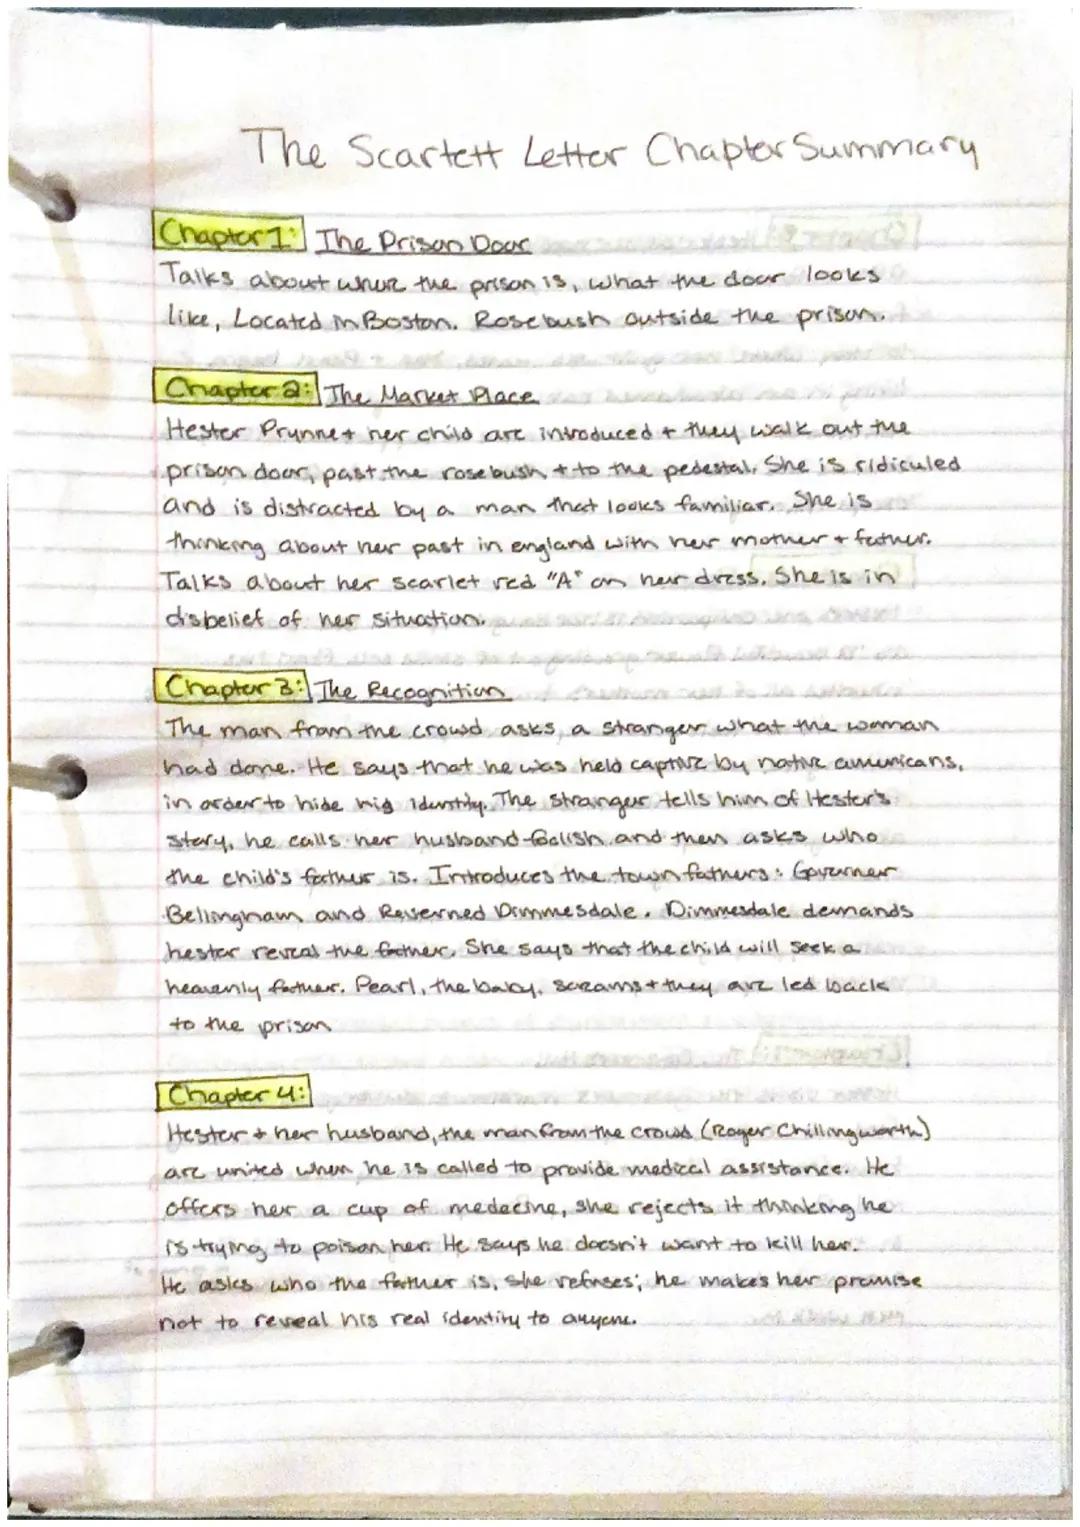 The Scarlett Letter Chapter Summary
Chapter 1: The Prison Door
Talks about where the prison is, what the door looks
like, Located in Boston. Rosebush outside the prison.
Chapter 2: The Market Place
Hester Prynne + her child are introduced + they walk out the
prison door, past the rosebush + to the pedestal. She is ridiculed
and is distracted by a man that looks familiar. She is
thinking about her past in england with her mother + father.
Talks about her scarlet red "A" on her dress. She is in
disbelief of her situation.
Chapter 3: The Recognition
The man from the crowd asks a stranger what the woman
had done. He says that he was held captive by native americans,
in order to hide his identity. The stranger tells him of Hester's
story, he calls her husband foolish and then asks who
the child's father is. Introduces the town fathers: Governer
Bellingham and Reverned Dimmesdale. Dimmesdale demands
hester reveal the father. She says that the child will seek a
heavenly father. Pearl, the baby, screams + they are led back
to the prison
Chapter 4:
Hester + her husband, the man from the crowd (Roger Chillingworth)
are united when he is called to provide medical assistance. He
offers her a cup of medecine, she rejects it thinking he
is trying to poison her. He says he doesn't want to kill her.
He asks who the father is, she refuses; he makes her promise
not to reveal his real identity to anyone.